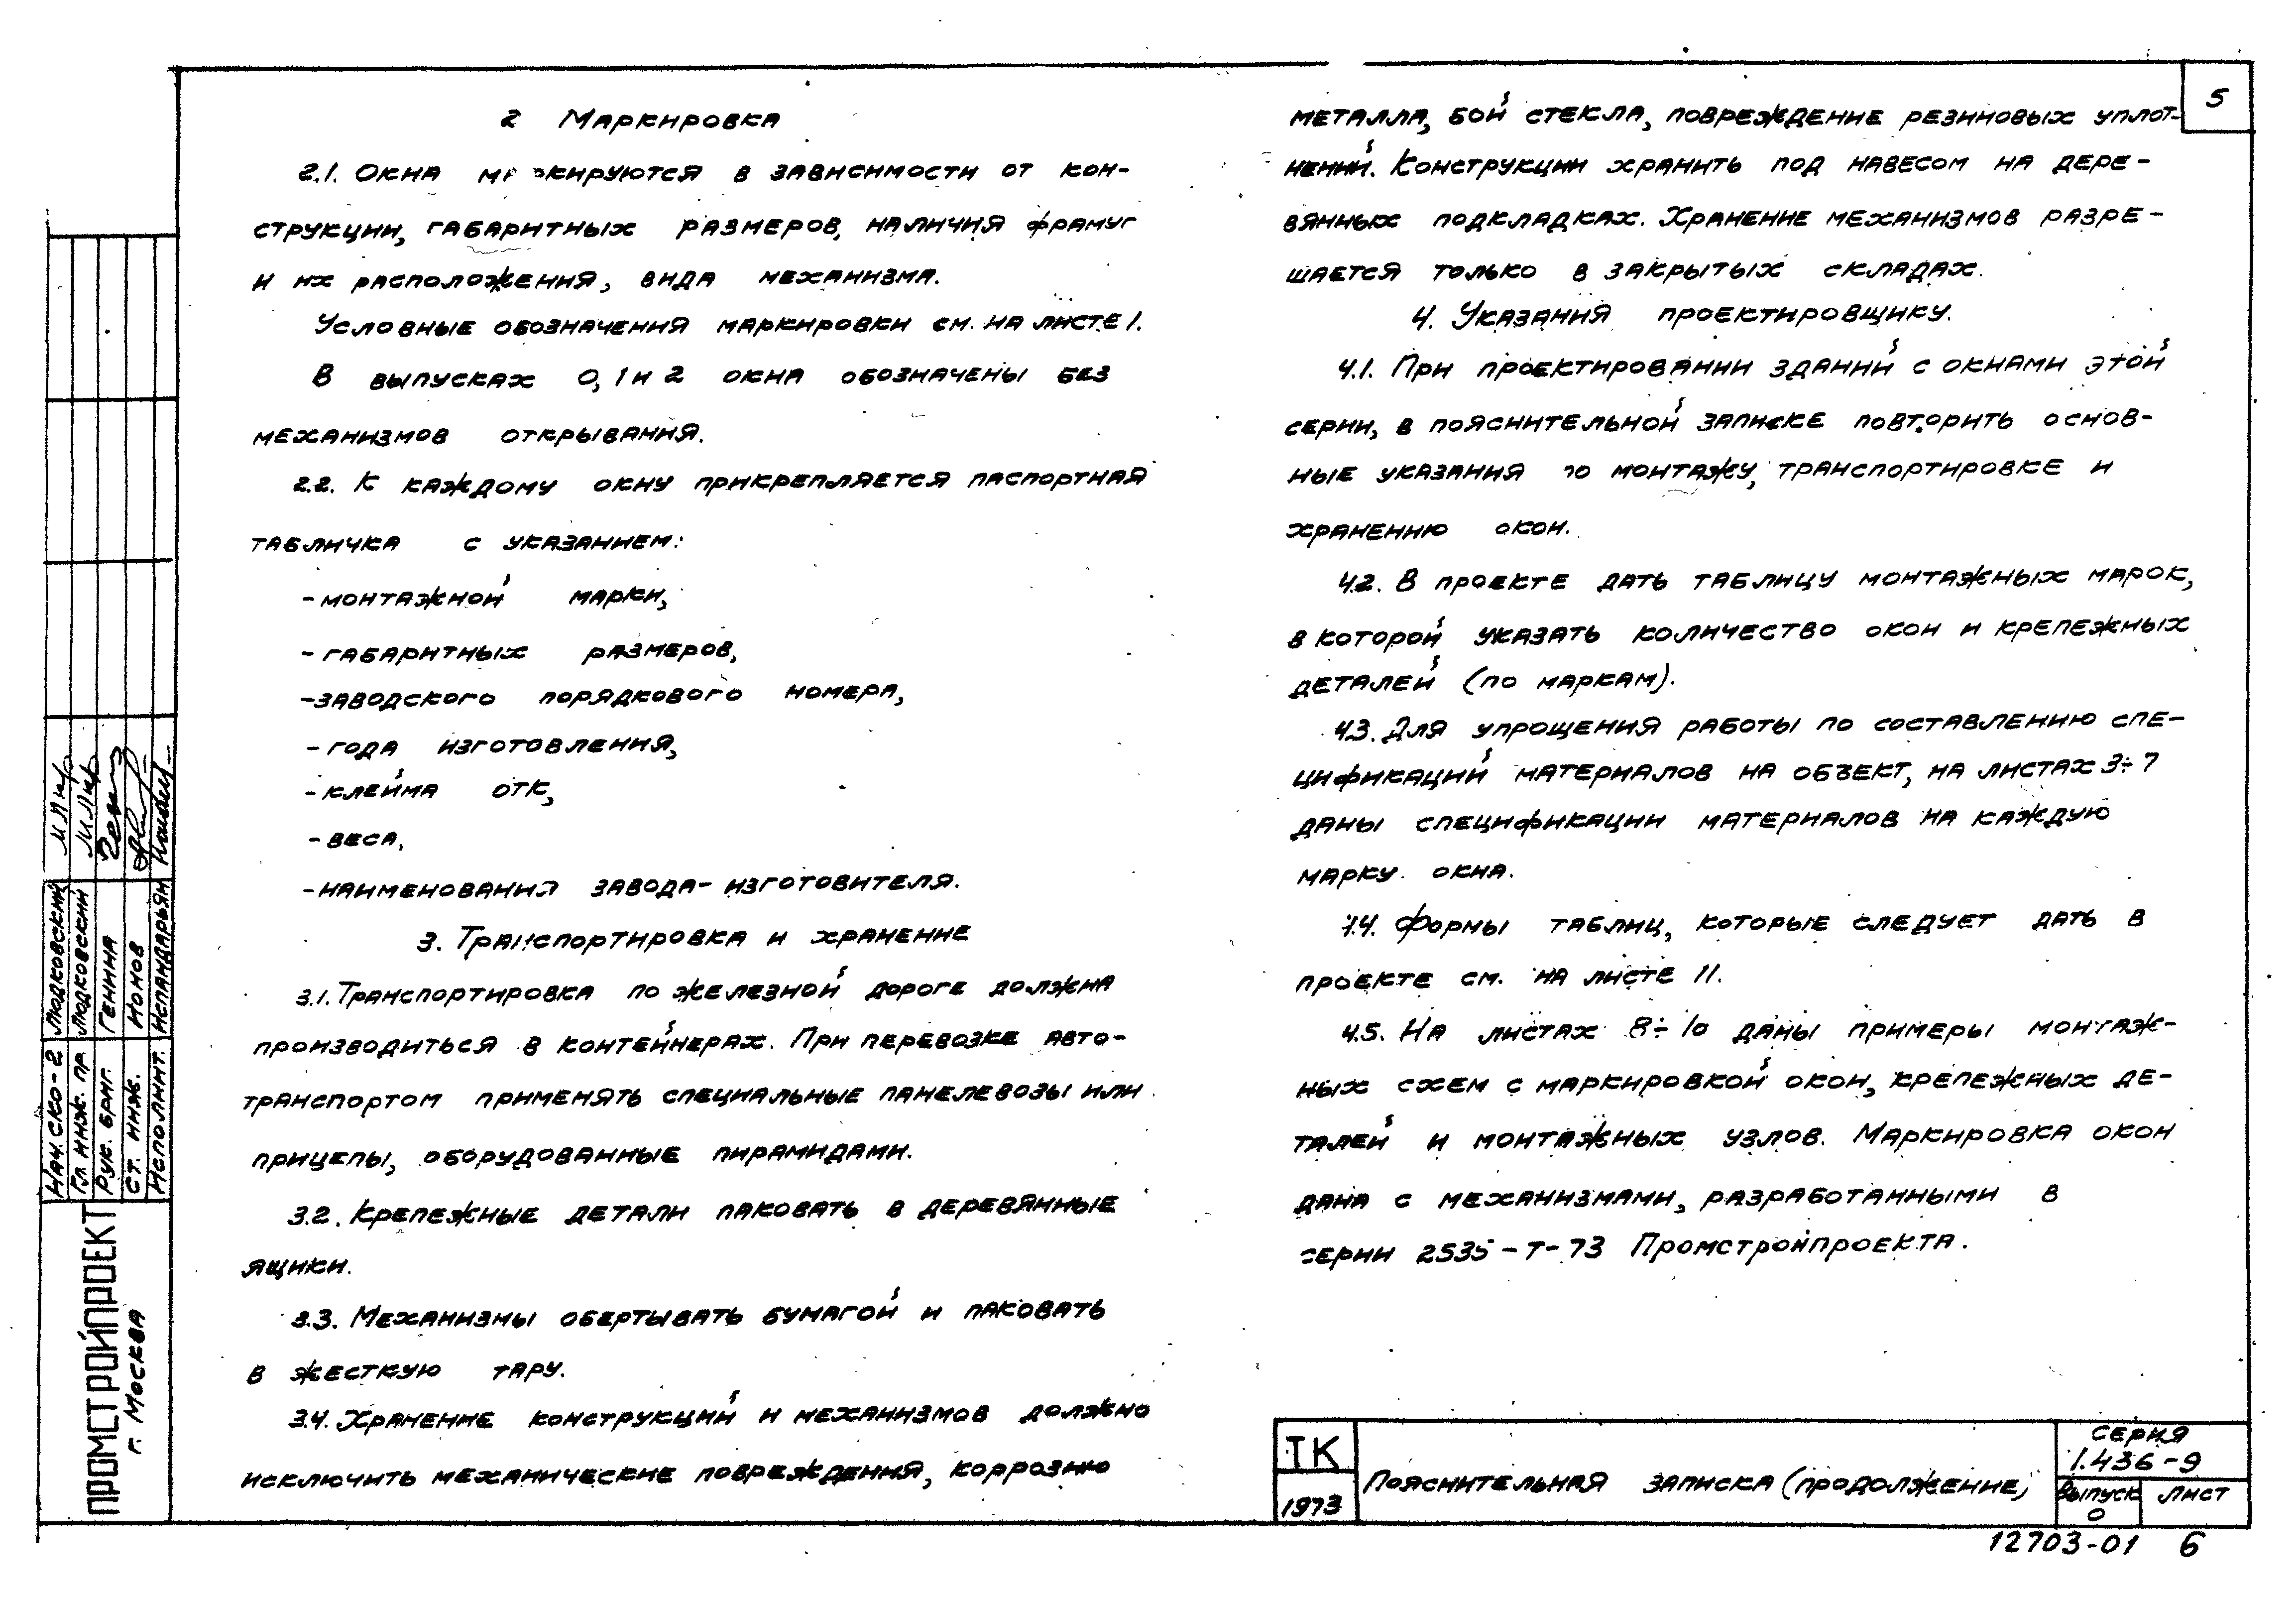 5
2 Маркировка
2.1. Окна маркируются в зависимости от кон-
струкции, габаритных размеров, наличия фрамуг
и их расположения, вида механизма.
Условные обозначения маркировки см. на листе 1.
В выпусках 0, 1 и 2 окна обозначены без
механизмов открывания.
2.2. К каждому окну прикрепляется паспортная
табличка с указанием:
- монтажной марки,
- габаритных размеров,
- заводского порядкового номера,
- года изготовления,
- клейма ОТК,
- веса,
- наименования завода-изготовителя.
3. Транспортировка и хранение
3.1. Транспортировка по железной дороге должна
производиться в контейнерах. При перевозке авто-
транспортом применять специальные панелевозы или
прицепы, оборудованные пирамидами.
3.2. Крепежные детали паковать в деревянные
ящики.
3.3. Механизмы обертывать бумагой и паковать
в жесткую тару.
3.4. Хранение конструкций и механизмов должно
исключить механические повреждения, коррозию
металла, бой стекла, повреждение резиновых уплот-
нений. Конструкции хранить под навесом на дере-
вянных подкладках. Хранение механизмов разре-
шается только в закрытых складах.
4. Указания проектировщику.
4.1. При проектировании зданий с окнами этой
серии, в пояснительной записке повторить основ-
ные указания по монтажу, транспортировке и
хранению окон.
4.2. В проекте дать таблицу монтажных марок,
в которой указать количество окон и крепежных
деталей (по маркам).
4.3. Для упрощения работы по составлению спе-
цификаций материалов на объект, на листах 3÷7
даны спецификации материалов на каждую
марку окна.
4.4. Формы таблиц, которые следует дать в
проекте см. на листе 11.
4.5. На листах 8÷10 даны примеры монтаж-
ных схем с маркировкой окон, крепежных де-
талей и монтажных узлов. Маркировка окон
дана с механизмами, разработанными в
серии 2535-Т-73 Промстройпроекта.
Нач. СКО-2 Людковский
Гл. инж. пр Людковский
Рук. бриг. Генина
Ст. инж. Ионов
Исполнит. Испандарьян
ПРОМСТРОЙПРОЕКТ
г. Москва
ТК
1973
Пояснительная записка (продолжение)
Серия
1.436-9
Выпуск
0
Лист
12703-01 6